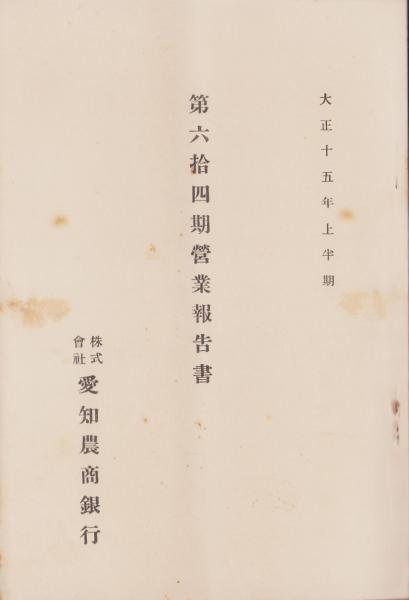 大正十五年上半期
第六拾四期營業報告書
株式會社
愛知農商銀行